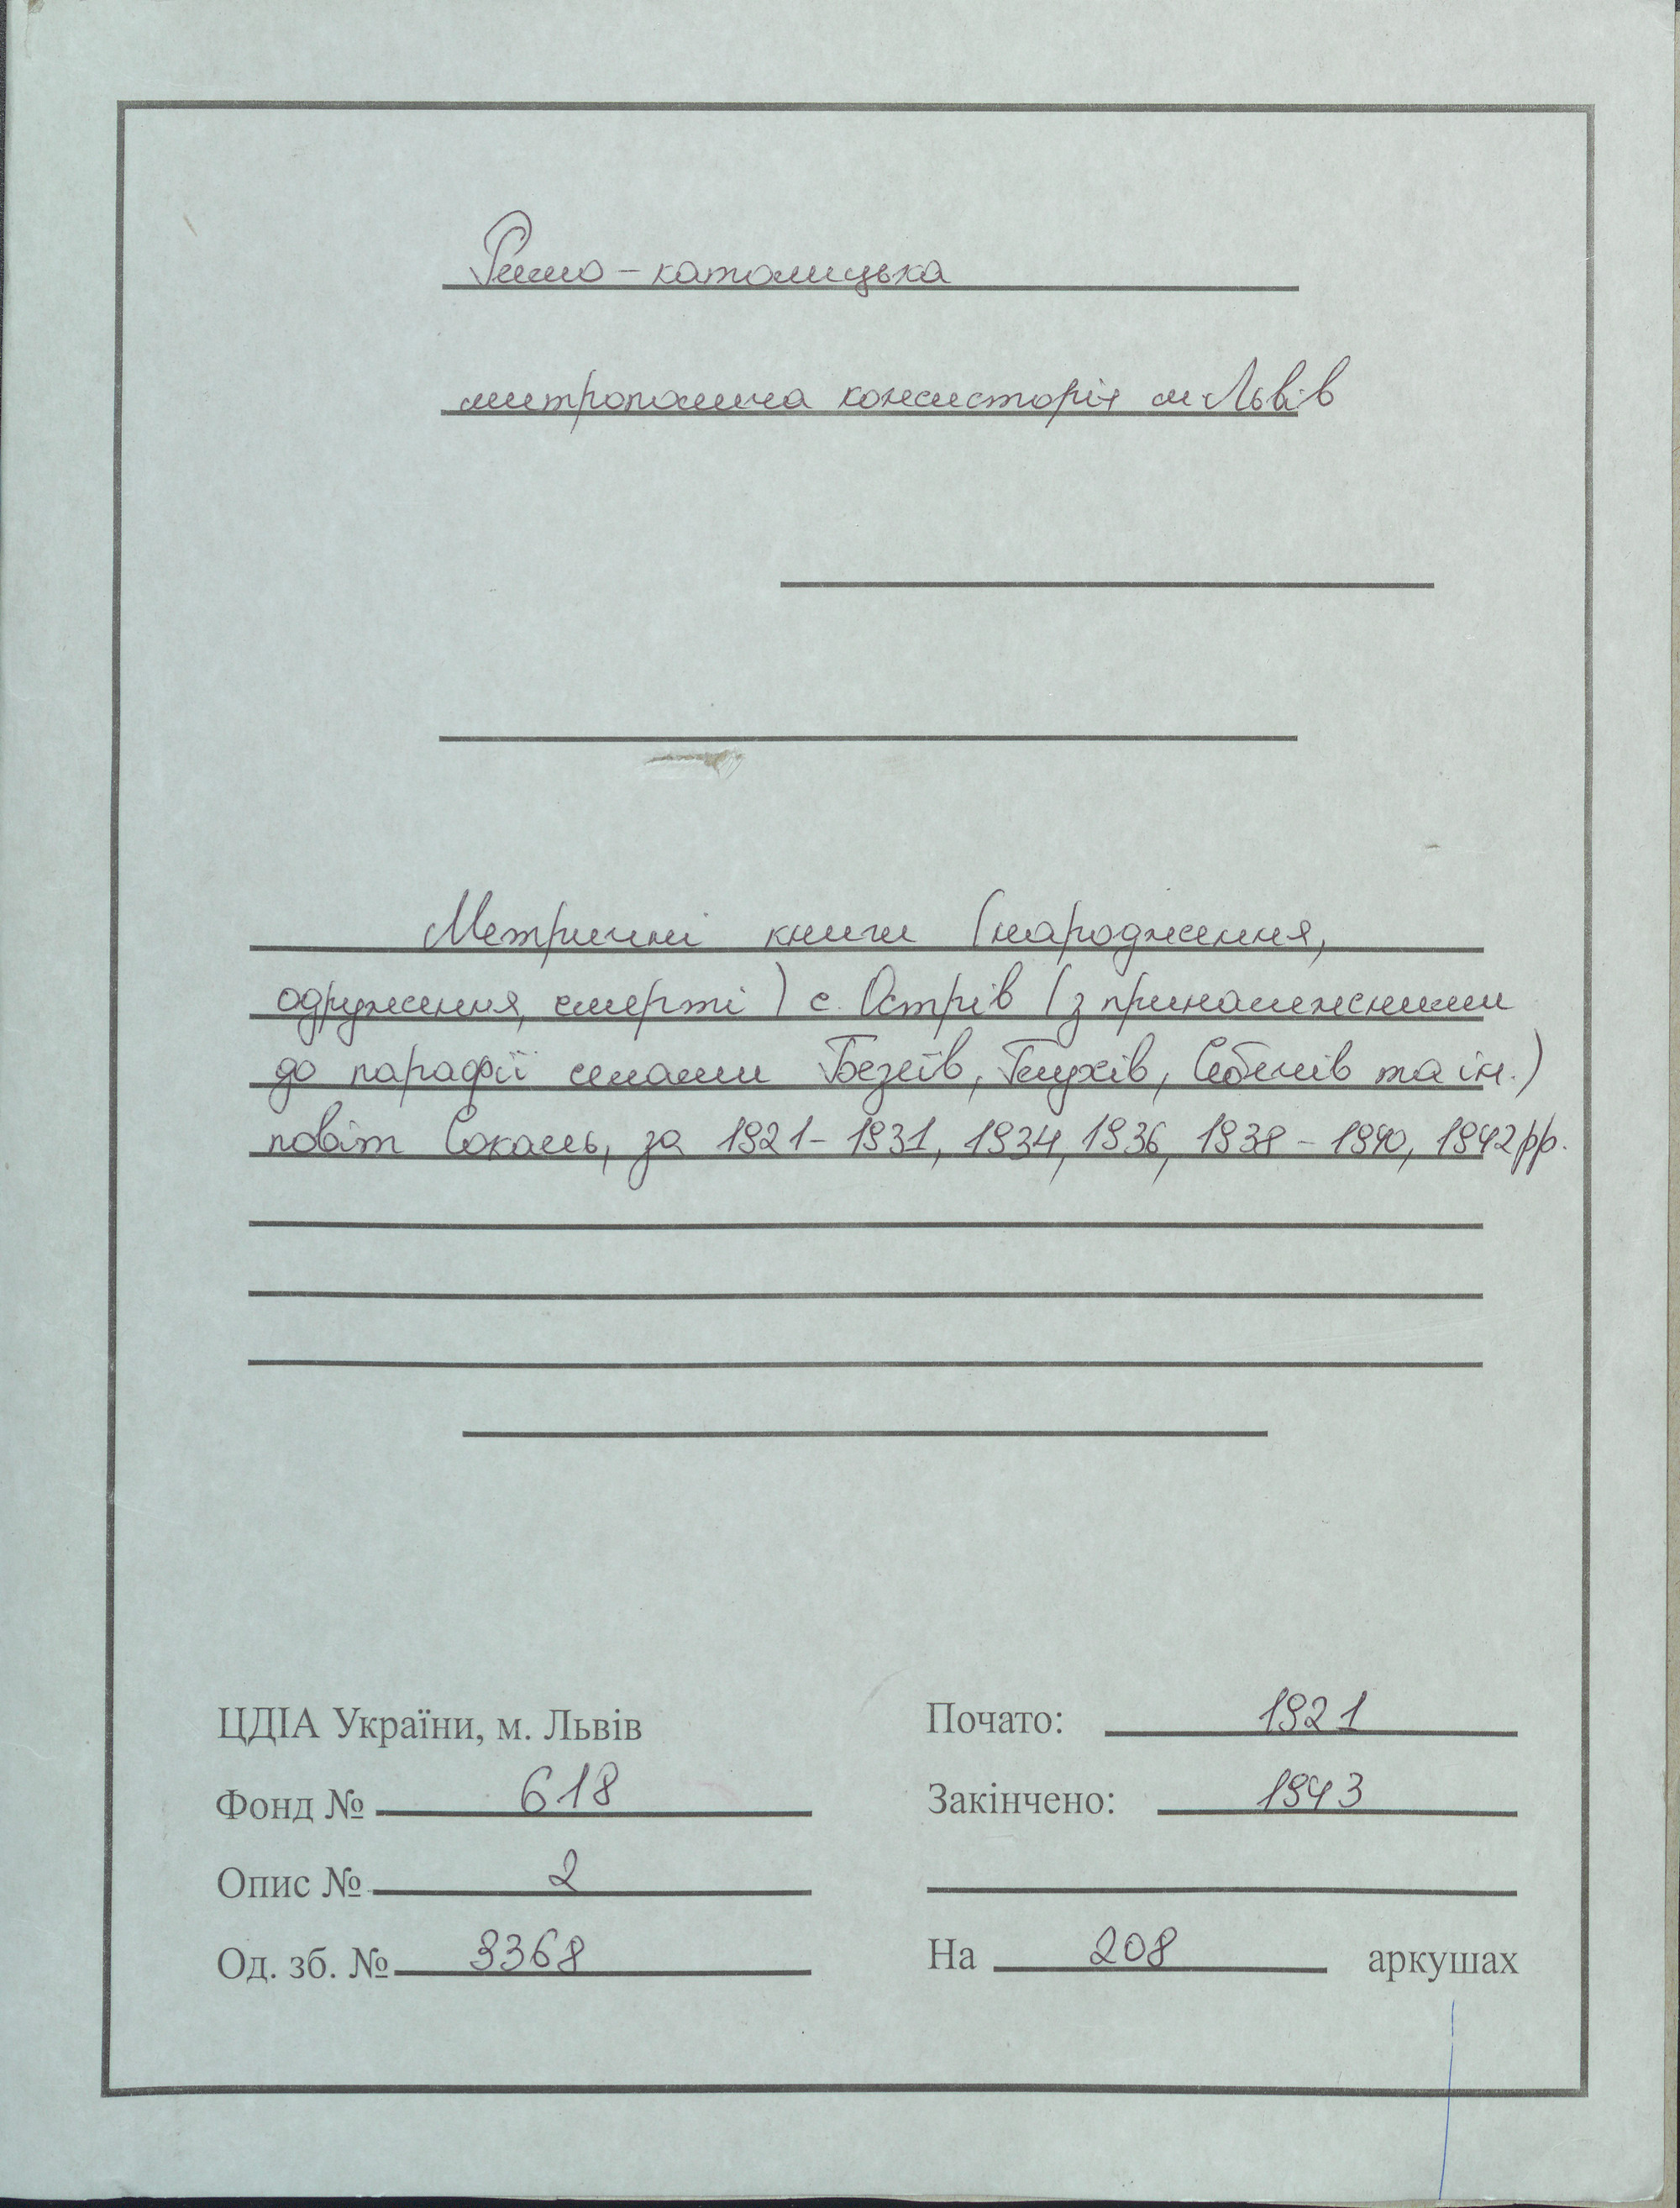 Римо-католицька
митрополича консисторія м. Львів
Метричні книги (народження,
одруження, смерті) с. Острів (з приналежними
до парафії селами Безеїв, Глухів, Себечів та ін.)
повіт Сокаль, за 1921-1931, 1934, 1936, 1938-1940, 1942 рр.
ЦДІА України, м. Львів
Фонд № 618
Опис № 2
Од. зб. № 3368
Почато: 1921
Закінчено: 1943
На 208 аркушах